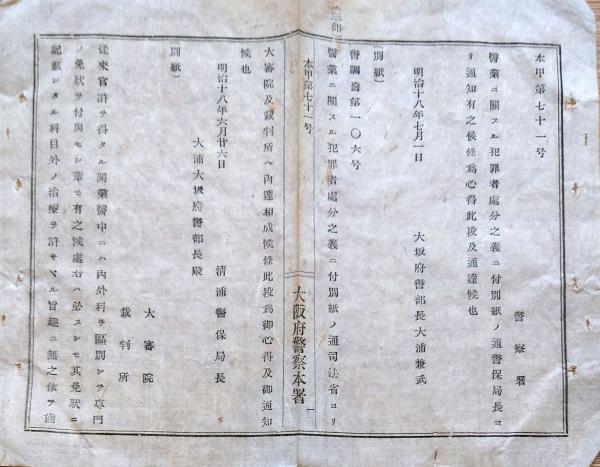 本甲第七十一号
警察署
醫業ニ關スル犯罪者處分之義ニ付別紙ノ通警保局長ヨ
リ通知有之候條爲心得此段及通達候也
明治十八年七月一日
大坂府警部長大浦兼武
(別紙)
警調發第一〇六号
醫業ニ關スル犯罪者處分之義ニ付別紙ノ通司法省ヨリ
本甲第七十一号
大阪府警察本署
一
大審院及裁判所ヘ内達相成候條此段爲御心得及御通知
候也
明治十八年六月廿六日
清浦警保局長
大浦大坂府警部長殿
別紙)
大審院
裁判所
從來官許ヲ得タル開業醫中ニハ内外科ヲ區別シテ專門
ノ免狀ヲ付與セシ輩モ有之候處右ハ必スシモ其免狀ニ
記載シタル科目外ノ治療ヲ許サヽル旨趣ニ無之依テ